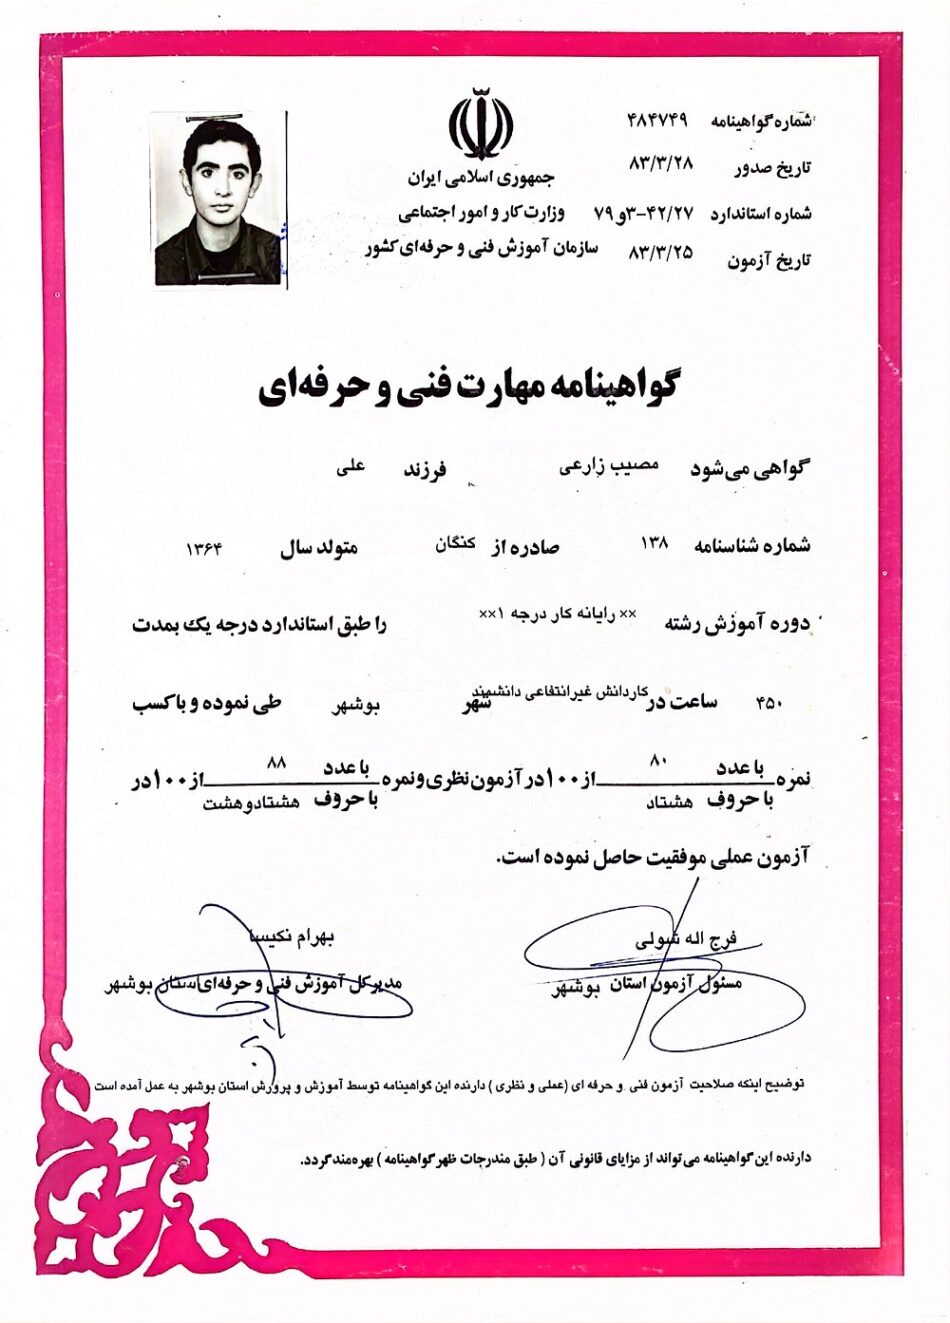 شماره گواهینامه ۴۸۴۷۴۹
تاریخ صدور ۸۳/۳/۲۸
شماره استاندارد ۴۲/۲۷-۳و ۷۹
تاریخ آزمون ۸۳/۳/۲۵
جمهوری اسلامی ایران
وزارت کار و امور اجتماعی
سازمان آموزش فنی و حرفه‌ای کشور
گواهینامه مهارت فنی و حرفه‌ای
گواهی می‌شود مصیب زارعی فرزند علی
شماره شناسنامه ۱۳۸ صادره از کنگان متولد سال ۱۳۶۴
دوره آموزش رشته ×× رایانه کار درجه ۱×× را طبق استاندارد درجه یک بمدت
۴۵۰ ساعت در کاردانش غیرانتفاعی دانشمند شهر بوشهر طی نموده و با کسب
نمره با عدد ۸۰ با حروف هشتاد از ۱۰۰ در آزمون نظری و نمره با عدد ۸۸ با حروف هشتادوهشت از ۱۰۰ در
آزمون عملی موفقیت حاصل نموده است.
فرج اله شولی
مسئول آزمون استان بوشهر
بهرام نکیسا
مدیرکل آموزش فنی و حرفه‌ای استان بوشهر
توضیح اینکه صلاحیت آزمون فنی و حرفه ای (عملی و نظری) دارنده این گواهینامه توسط آموزش و پرورش استان بوشهر به عمل آمده است
دارنده این گواهینامه می‌تواند از مزایای قانونی آن (طبق مندرجات ظهر گواهینامه) بهره‌مند گردد.